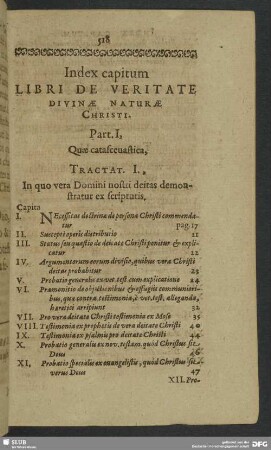 518
Index capitum
LIBRI DE VERITATE
DIVINÆ NATURÆ
CHRISTI.
Part. I,
Quæ catasceuastica,
TRACTAT. I.,
In quo vera Domini nostri deitas demon-
stratur ex scripturis.
Capita
I. NEcessitas doctrinæ de persona Christi commenda-
tur pag. 15
II. Suscepti operis distributio 11
III. Status seu quæstio de deitate Christi ponitur & expli-
catur 12
IV. Argumentorum eorum divisio, quibus vera Christi
deitas probabitur 23
V. Probatio generalis ex vet. test. cum explicatione 24
VI. Præmonitio de objectionibus & effugiis communiori-
bus, quæ contra testimonia, è vet. test. alleganda,
hæretici arripiunt 32
VII. Pro vera deitate Christi testimonia ex Mose 35
VIII. Testimonia ex prophetis de vera deitate Christi 40
IX. Testimonia ex psalmis pro deitate Christi 44
X. Probatio generalis ex nov. testam. quod Christus sit
Deus 46
XI. Probatio specialis ex evangelistis, quod Christus sit
verus Deus 47
XII. Pro-
SLUB
DFG